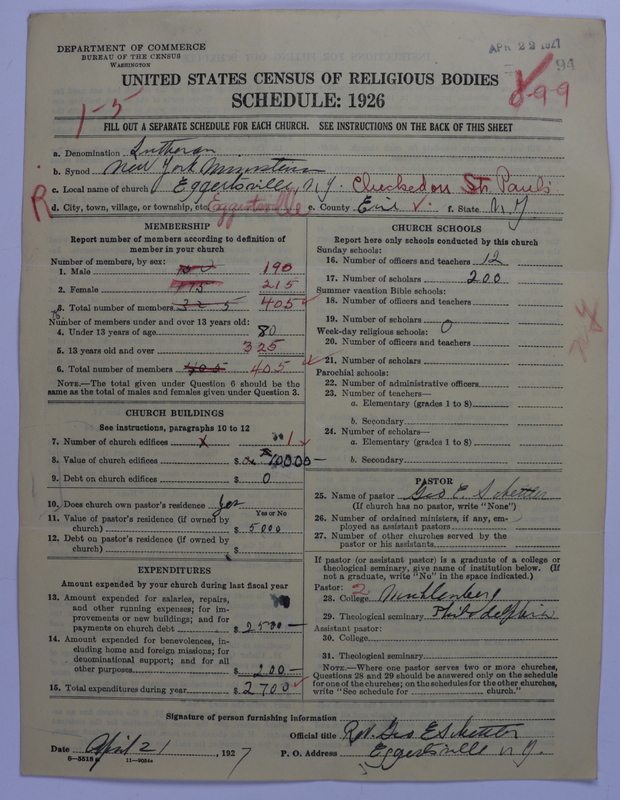 DEPARTMENT OF COMMERCE
BUREAU OF THE CENSUS
WASHINGTON
APR 22 1927
94
UNITED STATES CENSUS OF RELIGIOUS BODIES
899
SCHEDULE: 1926
1-5
FILL OUT A SEPARATE SCHEDULE FOR EACH CHURCH. SEE INSTRUCTIONS ON THE BACK OF THIS SHEET
a. Denomination Lutheran
b. Synod New York Ministerium
c. Local name of church Eggertsville, N.Y. Checked on St. Paul's
R d. City, town, village, or township, etc. Eggertsville e. County Erie f. State N.Y.
MEMBERSHIP
Report number of members according to definition of
member in your church
Number of members, by sex:
1. Male 190
2. Female 175 215
3. Total number of members 325 405
Number of members under and over 13 years old:
4. Under 13 years of age 80
5. 13 years old and over 325
6. Total number of members 405 405
NOTE.—The total given under Question 6 should be the
same as the total of males and females given under Question 3.
CHURCH BUILDINGS
See instructions, paragraphs 10 to 12
7. Number of church edifices 1
8. Value of church edifices $ 10000—
9. Debt on church edifices $ 0
10. Does church own pastor's residence Yes
Yes or No
11. Value of pastor's residence (if owned by
church) $ 5000
12. Debt on pastor's residence (if owned by
church) $
EXPENDITURES
Amount expended by your church during last fiscal year
13. Amount expended for salaries, repairs,
and other running expenses; for im-
provements or new buildings; and for
payments on church debt $ 2500—
14. Amount expended for benevolences, in-
cluding home and foreign missions; for
denominational support; and for all
other purposes $ 200—
15. Total expenditures during year $ 2700
CHURCH SCHOOLS
Report here only schools conducted by this church
Sunday schools:
16. Number of officers and teachers 12
17. Number of scholars 200
Summer vacation Bible schools:
18. Number of officers and teachers
19. Number of scholars
Week-day religious schools: 0
20. Number of officers and teachers
21. Number of scholars
Parochial schools:
22. Number of administrative officers
23. Number of teachers—
a. Elementary (grades 1 to 8)
b. Secondary
24. Number of scholars—
a. Elementary (grades 1 to 8)
b. Secondary
PASTOR
25. Name of pastor Geo E. Schettler
(If church has no pastor, write "None")
26. Number of ordained ministers, if any, em-
ployed as assistant pastors
27. Number of other churches served by the
pastor or his assistants
If pastor (or assistant pastor) is a graduate of a college or
theological seminary, give name of institution below. (If
not a graduate, write "No" in the space indicated.)
Pastor: 2
28. College Muhlenberg
29. Theological seminary Philadelphia
Assistant pastor:
30. College
31. Theological seminary
NOTE.—Where one pastor serves two or more churches,
Questions 28 and 29 should be answered only on the schedule
for one of the churches; on the schedules for the other churches,
write "See schedule for church."
Signature of person furnishing information
Official title Rev. Geo E Schettler
Date April 21, 1927
P. O. Address Eggertsville N.Y.
8-5518
11-9054c